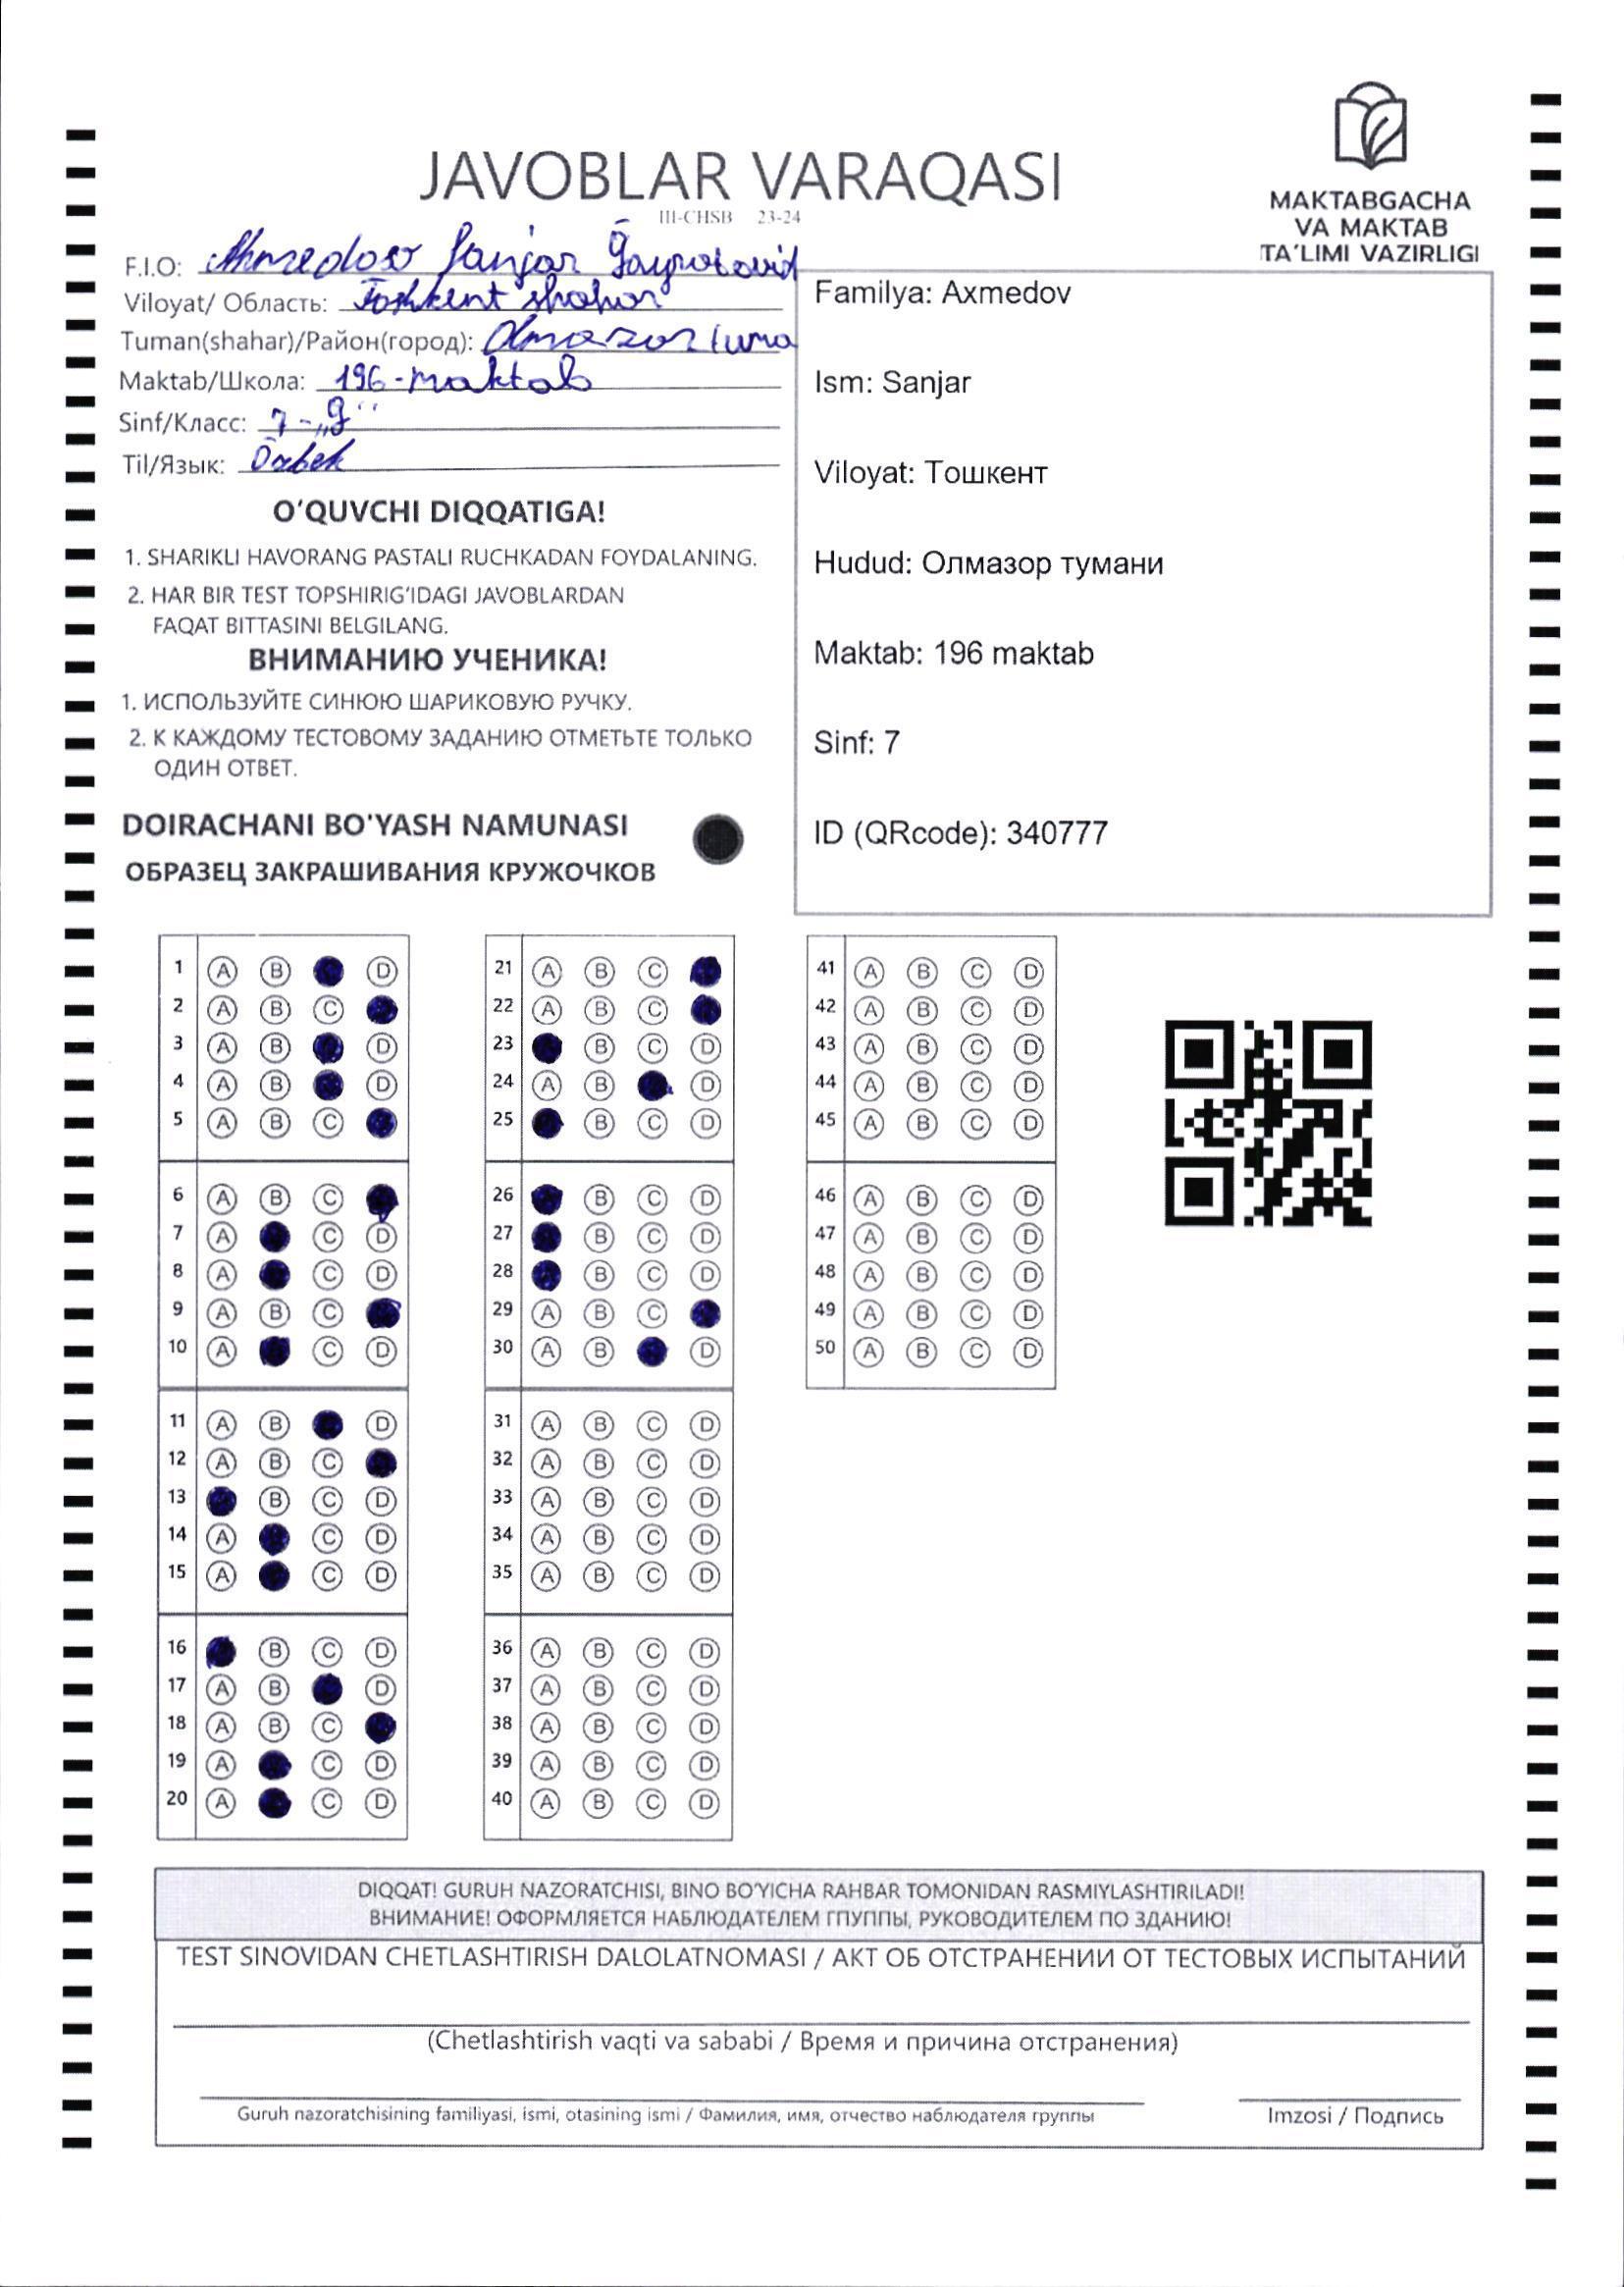 JAVOBLAR VARAQASI
III-CHSB 23-24
MAKTABGACHA
VA MAKTAB
TA'LIMI VAZIRLIGI
F.I.O: Ahmedov Sanjar Ğayratovich
Viloyat/ Область: Toshkent shahar
Tuman(shahar)/Район(город): Olmazor tuma
Maktab/Школа: 196-maktab
Sinf/Класс: 7-„g“
Til/Язык: Özbek
Familya: Axmedov
Ism: Sanjar
Viloyat: Тошкент
Hudud: Олмазор тумани
Maktab: 196 maktab
Sinf: 7
ID (QRcode): 340777
O'QUVCHI DIQQATIGA!
1. SHARIKLI HAVORANG PASTALI RUCHKADAN FOYDALANING.
2. HAR BIR TEST TOPSHIRIG'IDAGI JAVOBLARDAN
FAQAT BITTASINI BELGILANG.
ВНИМАНИЮ УЧЕНИКА!
1. ИСПОЛЬЗУЙТЕ СИНЮЮ ШАРИКОВУЮ РУЧКУ.
2. К КАЖДОМУ ТЕСТОВОМУ ЗАДАНИЮ ОТМЕТЬТЕ ТОЛЬКО
ОДИН ОТВЕТ.
DOIRACHANI BO'YASH NAMUNASI
ОБРАЗЕЦ ЗАКРАШИВАНИЯ КРУЖОЧКОВ
1 A B D
2 A B C
3 A B D
4 A B D
5 A B C
6 A B C
7 A C D
8 A C D
9 A B C
10 A C D
11 A B D
12 A B C
13 B C D
14 A C D
15 A C D
16 B C D
17 A B D
18 A B C
19 A C D
20 A C D
21 A B C
22 A B C
23 B C D
24 A B D
25 B C D
26 B C D
27 B C D
28 B C D
29 A B C
30 A B D
31 A B C D
32 A B C D
33 A B C D
34 A B C D
35 A B C D
36 A B C D
37 A B C D
38 A B C D
39 A B C D
40 A B C D
41 A B C D
42 A B C D
43 A B C D
44 A B C D
45 A B C D
46 A B C D
47 A B C D
48 A B C D
49 A B C D
50 A B C D
DIQQAT! GURUH NAZORATCHISI, BINO BO'YICHA RAHBAR TOMONIDAN RASMIYLASHTIRILADI!
ВНИМАНИЕ! ОФОРМЛЯЕТСЯ НАБЛЮДАТЕЛЕМ ГПУППЫ, РУКОВОДИТЕЛЕМ ПО ЗДАНИЮ!
TEST SINOVIDAN CHETLASHTIRISH DALOLATNOMASI / АКТ ОБ ОТСТРАНЕНИИ ОТ ТЕСТОВЫХ ИСПЫТАНИЙ
(Chetlashtirish vaqti va sababi / Время и причина отстранения)
Guruh nazoratchisining familiyasi, ismi, otasining ismi / Фамилия, имя, отчество наблюдателя группы
Imzosi / Подпись